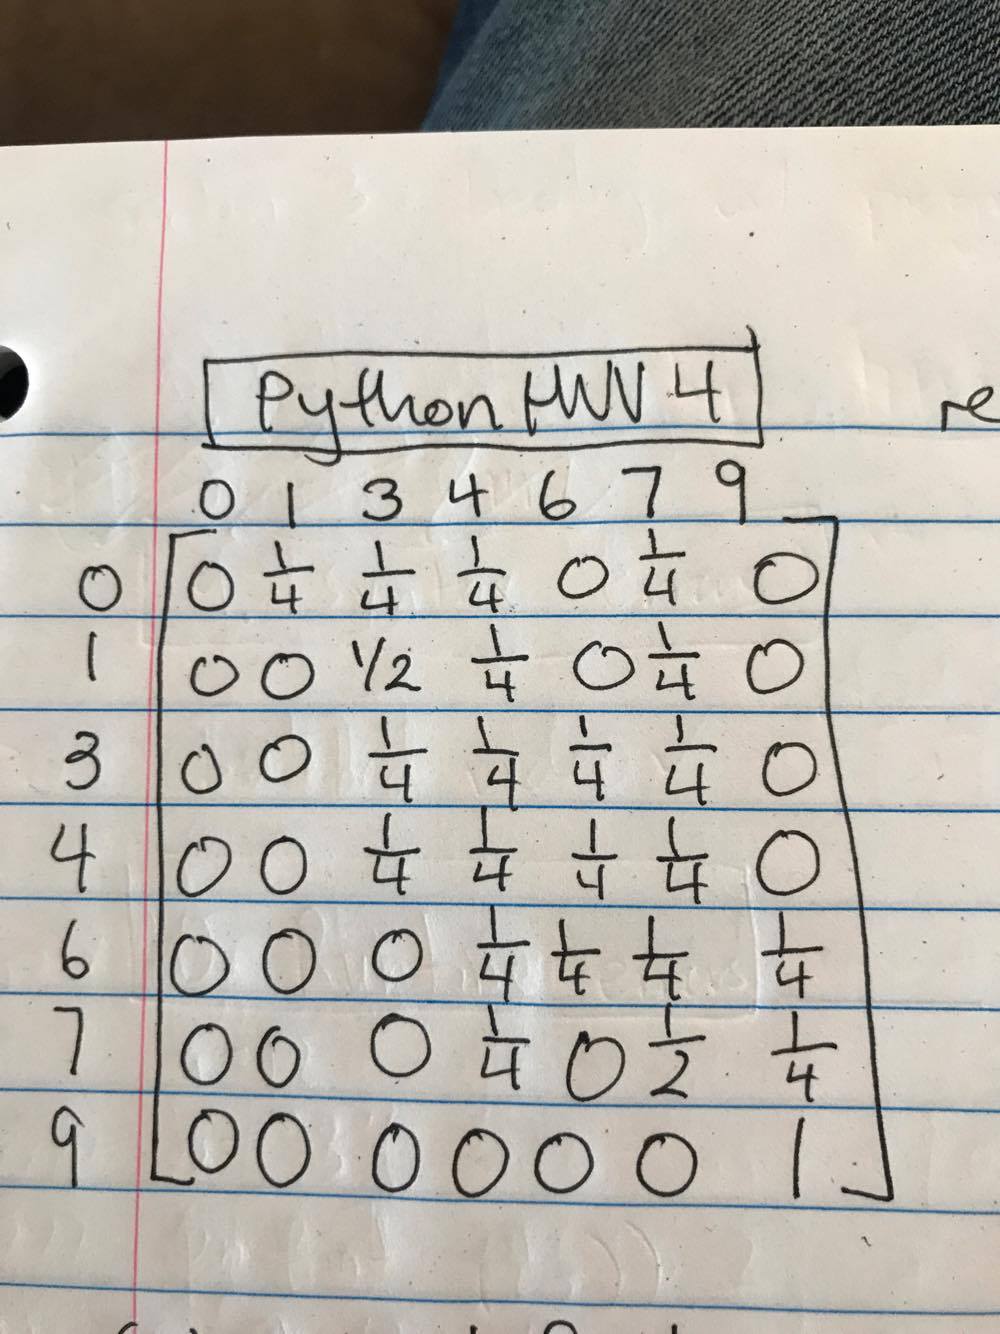 Python HW 4
re
0 1 3 4 6 7 9
0 0 1/4 1/4 1/4 0 1/4 0
1 0 0 1/2 1/4 0 1/4 0
3 0 0 1/4 1/4 1/4 1/4 0
4 0 0 1/4 1/4 1/4 1/4 0
6 0 0 0 1/4 1/4 1/4 1/4
7 0 0 0 1/4 0 1/2 1/4
9 0 0 0 0 0 0 1